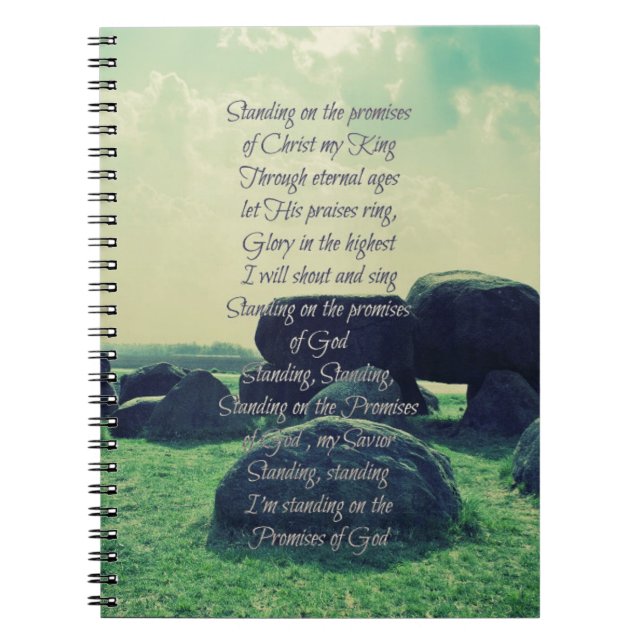 Standing on the promises
of Christ my King
Through eternal ages
let His praises ring,
Glory in the highest
I will shout and sing
Standing on the promises
of God
Standing, Standing,
Standing on the Promises
of God , my Savior
Standing, standing
I'm standing on the
Promises of God